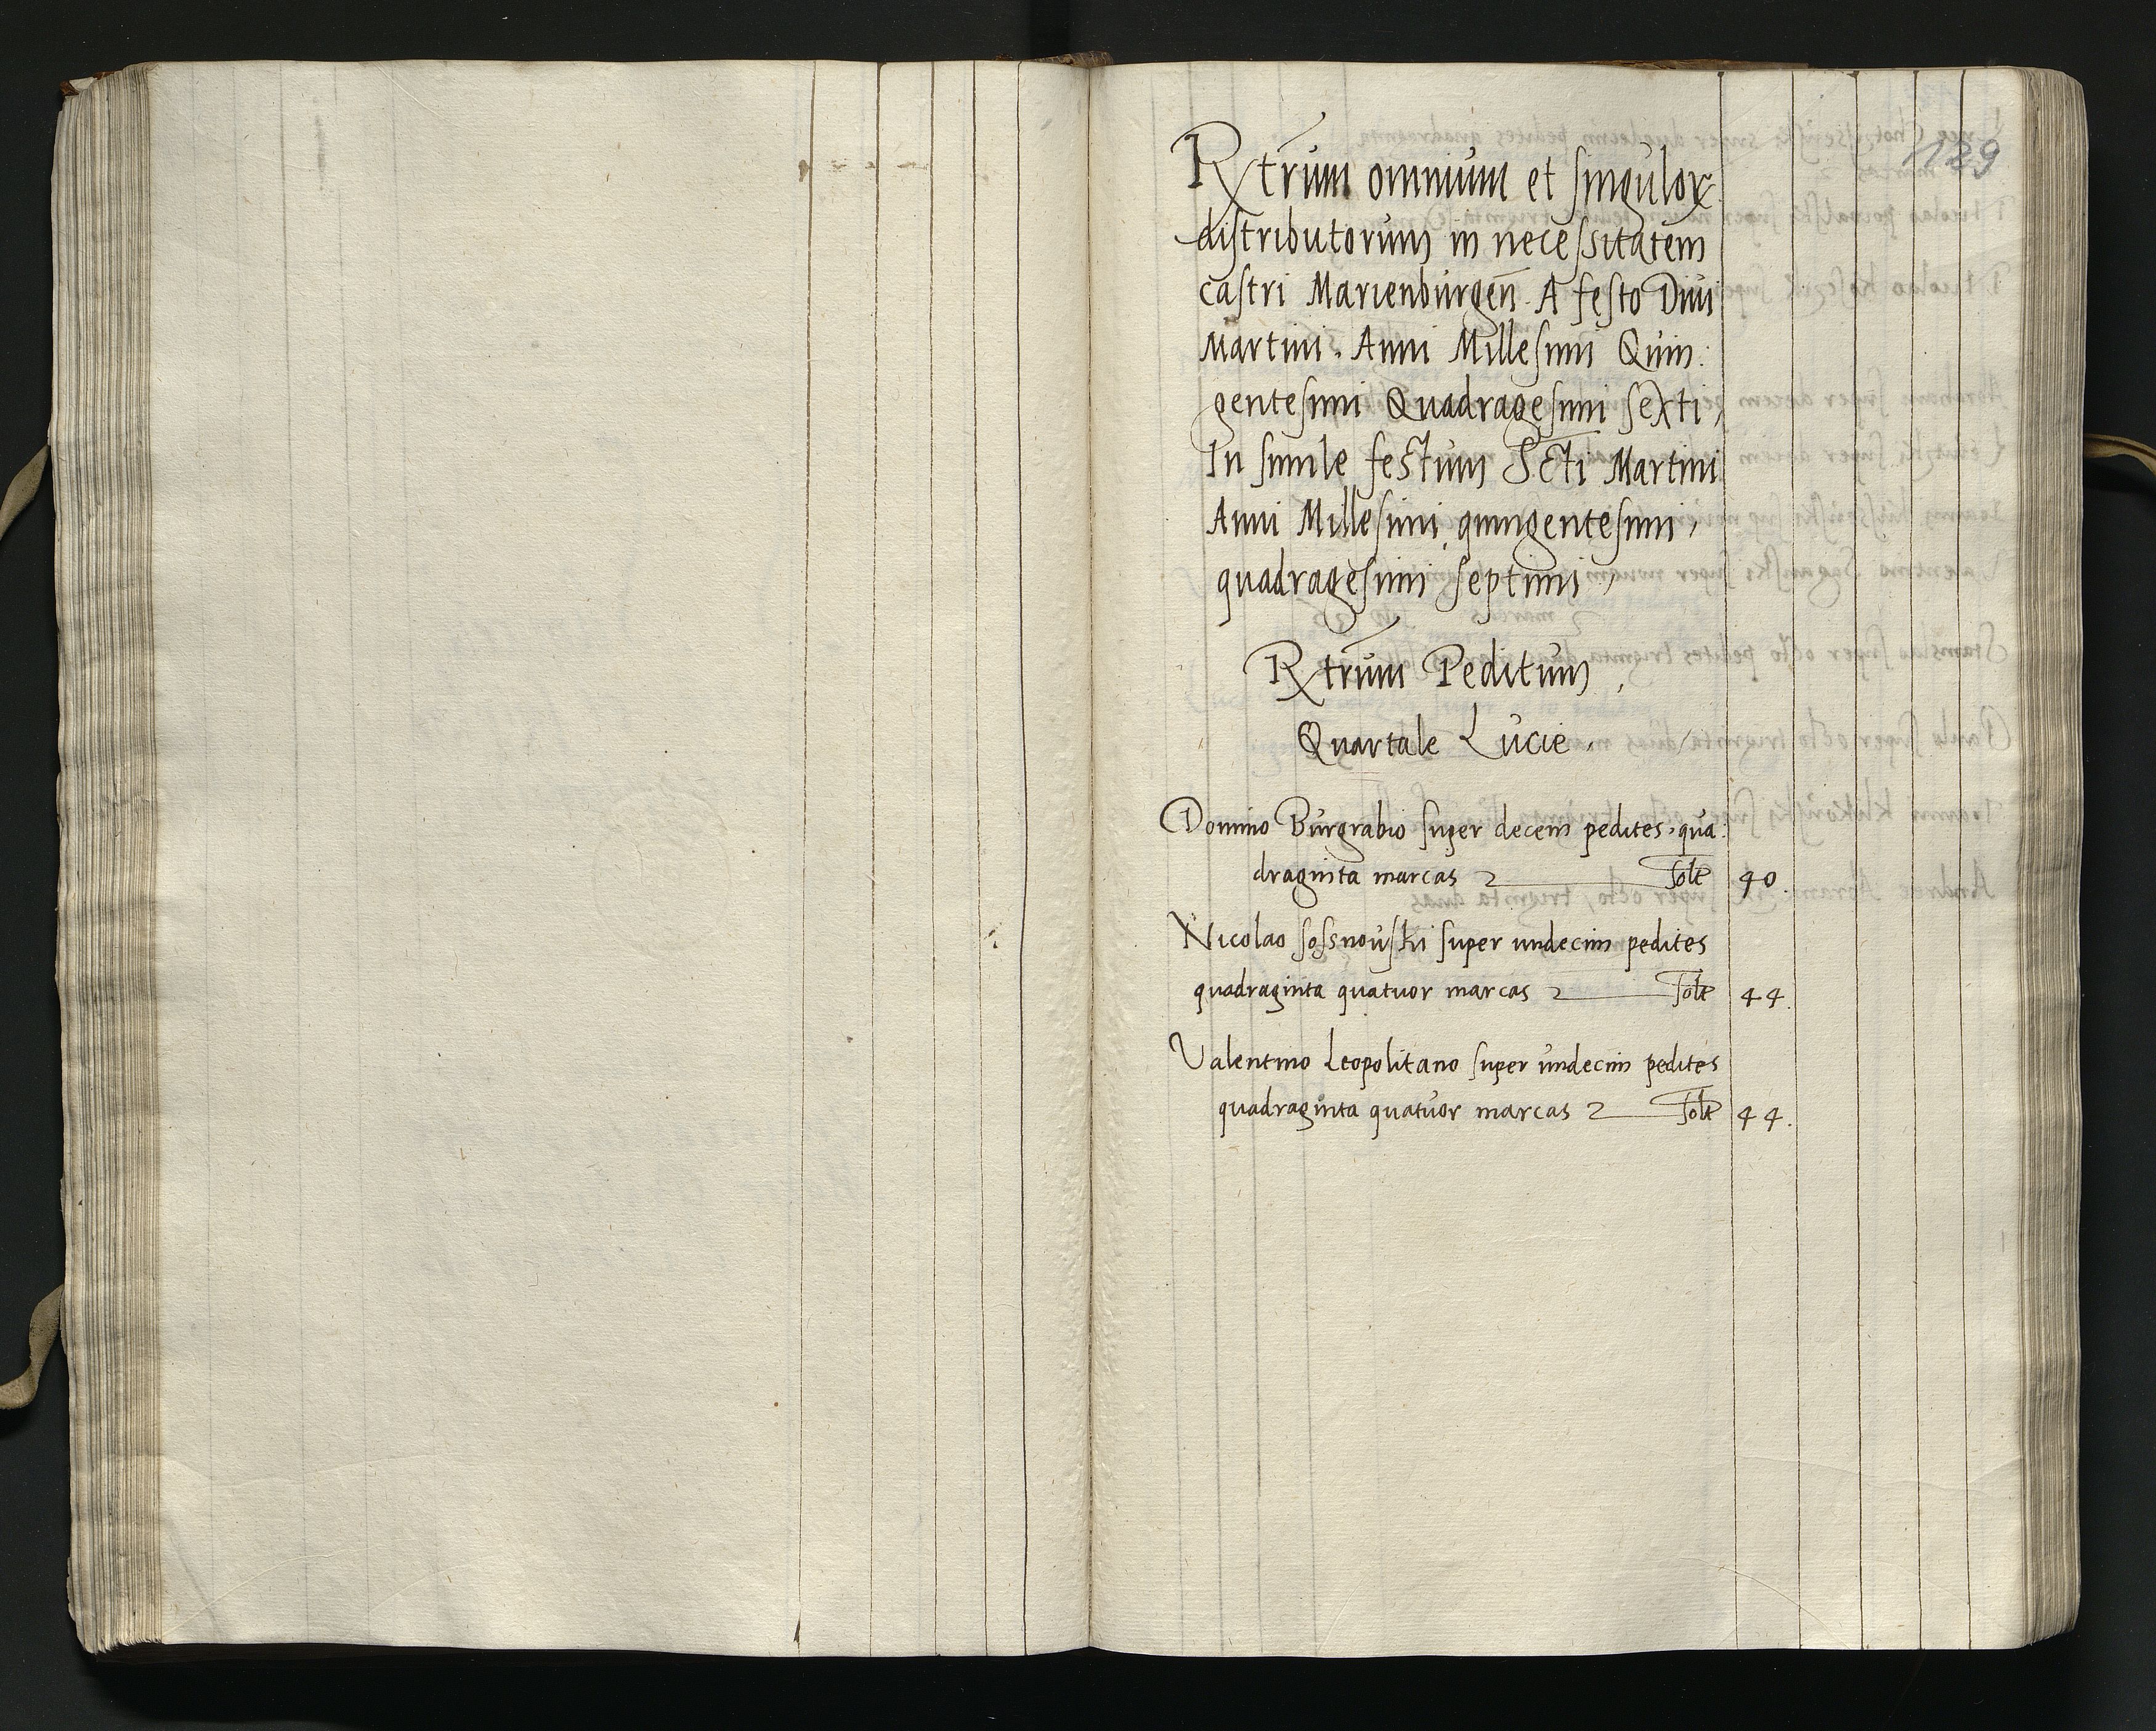 129
Rxtrum omnium et singulor
distributorum in necessitatem
castri Marienburgen̄. A festo Diui
Martini. Anni Millesimi Quin:
gentesimi Quadragesimi sexti,
In simile festum Scti Martini
Anni Millesimi quingentesimi,
quadragesimi septimi,
Rxtrum Peditum,
Quartale Lucie.
Domino Burgrabio super decem pedites, qua:
draginta marcas solt 40.
Nicolao sossnouski super undecim pedites
quadraginta quatuor marcas solt 44.
Valentino Leopolitano super undecim pedites
quadraginta quatuor marcas solt 44.